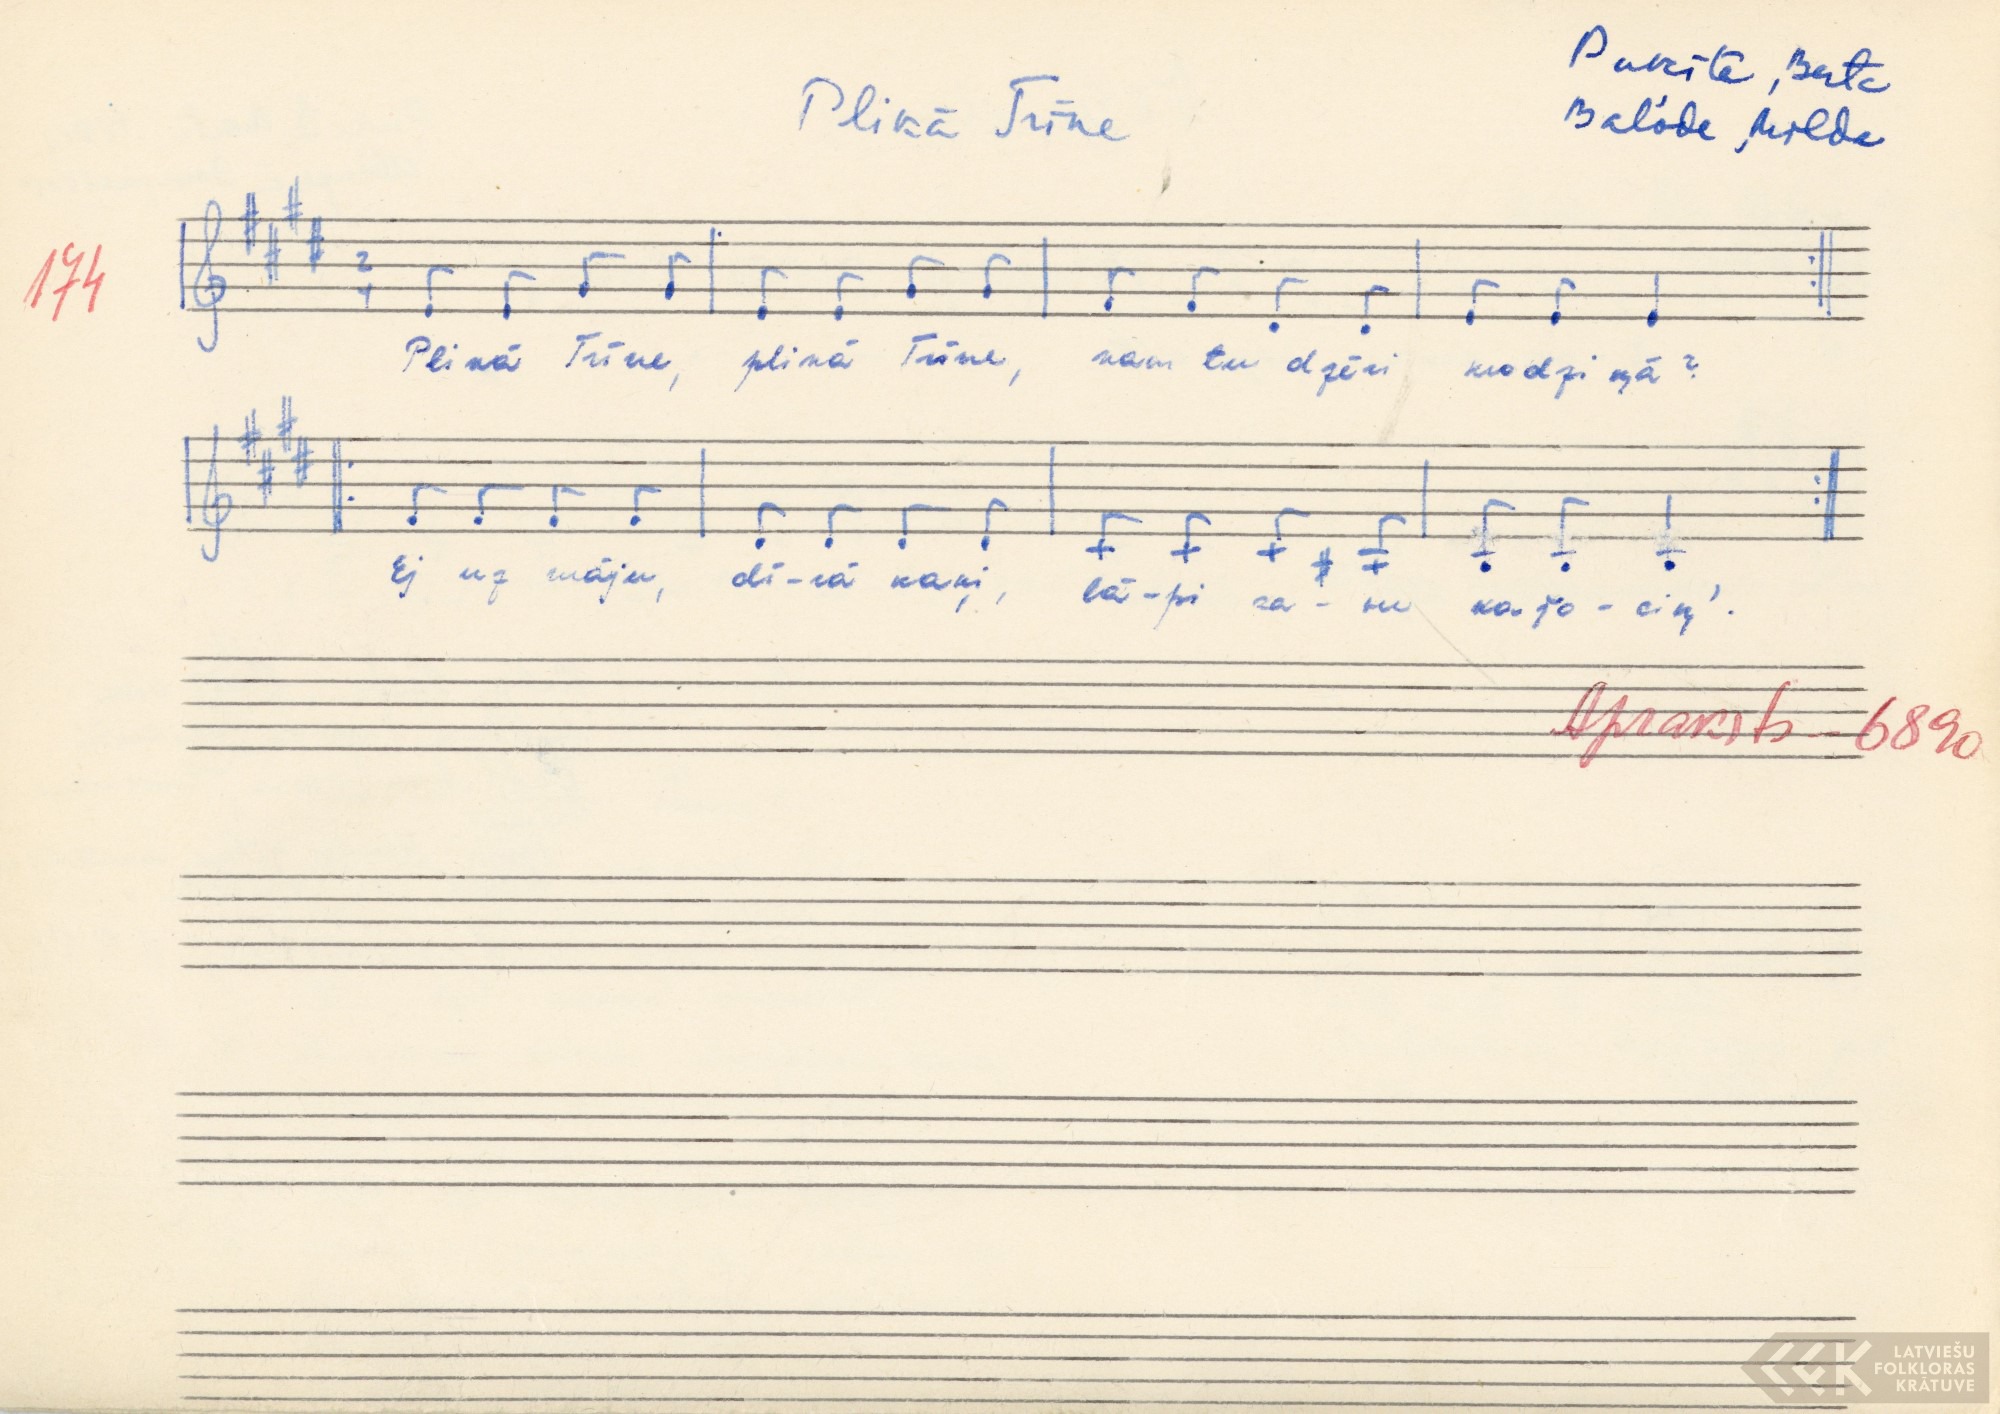 Plikā Trīne
Pukīte, Berta
Balode, Milda
174
2
4
Plikā Trīne, plikā Trīne, kam tu dzēri krodziņā?
Ej uz māju, dī-rā kaķi, lā-pi sa-vu kažo-ciņ'.
Apraksts - 6890
LATVIEŠU
FOLKLORAS
KRĀTUVE